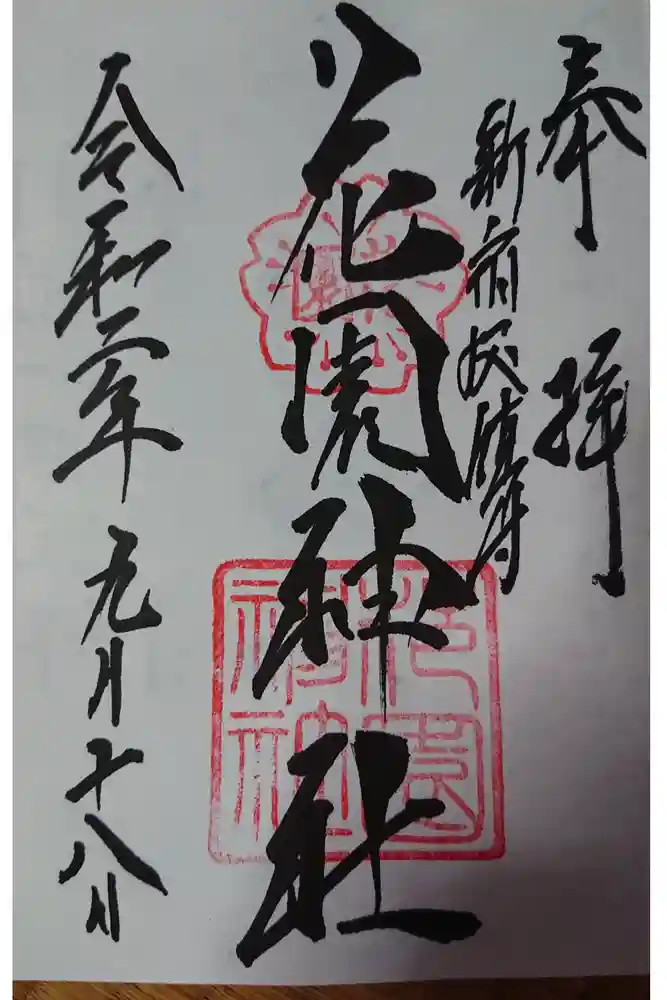 奉拝
新宿総鎮守
花園神社
花園神社
令和二年九月十八日